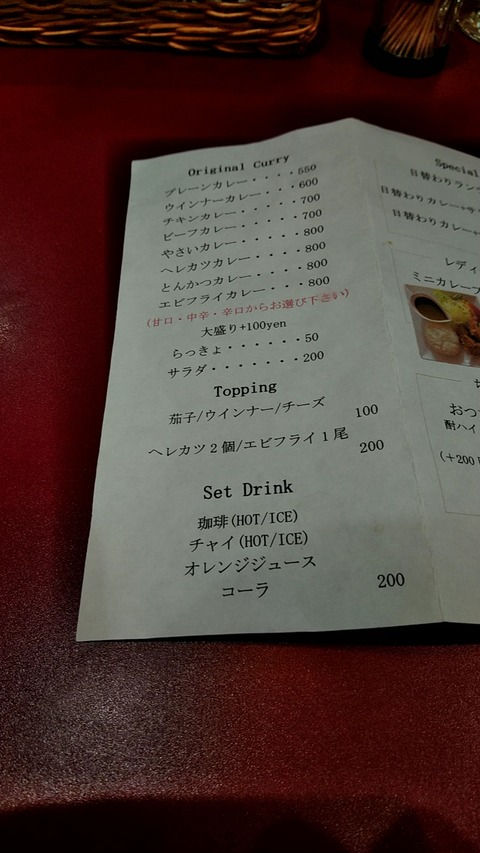 Original Curry
プレーンカレー・・・・550
ウインナーカレー・・・・600
チキンカレー・・・・・700
ビーフカレー・・・・・700
やさいカレー・・・・・800
ヘレカツカレー・・・・800
とんかつカレー・・・・800
エビフライカレー・・・800
(甘口・中辛・辛口からお選び下さい)
大盛り+100yen
らっきょ・・・・・・50
サラダ・・・・・・・200
Topping
茄子/ウインナー/チーズ 100
ヘレカツ2個/エビフライ1尾 200
Set Drink
珈琲(HOT/ICE)
チャイ(HOT/ICE)
オレンジジュース
コーラ 200
Special
日替わりラン
日替わりカレー+サ
日替わりカレー+
レディ
ミニカレープ
おつ
酎ハイ
(+200